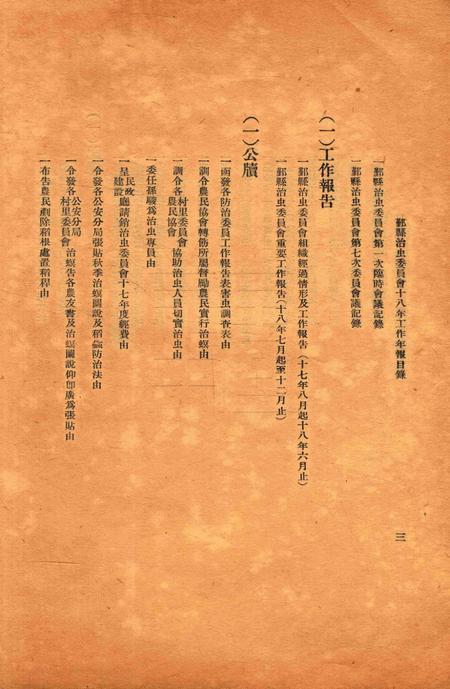 鄞縣治虫委員會十八年工作年報目錄
三
一鄞縣治虫委員會第一次臨時會議記錄
一鄞縣治虫委員會第七次委員會議記錄
（一）工作報告
一鄞縣治虫委員會組織經過情形及工作報告（十七年八月起十八年六月止）
一鄞縣治虫委員會重要工作報告（十八年七月起至十二月止）
（一）公牘
一函發各防治委員工作報告表害虫調查表由
一訓令農民協會轉飭所屬督勵農民實行治螟由
一訓令各村里委員會農民協會協助治虫人員切實治虫由
一委任孫駿爲治虫專員由
一呈民政建設廳請給治虫委員會十七年度經費由
一令發各公安分局張貼秋季治螟圖說及稻蝨防治法由
一令發各公安分局村里委員會治螟告各農友書及治螟圖說仰卽廣爲張貼由
一布告農民剷除稻根處置稻稈由